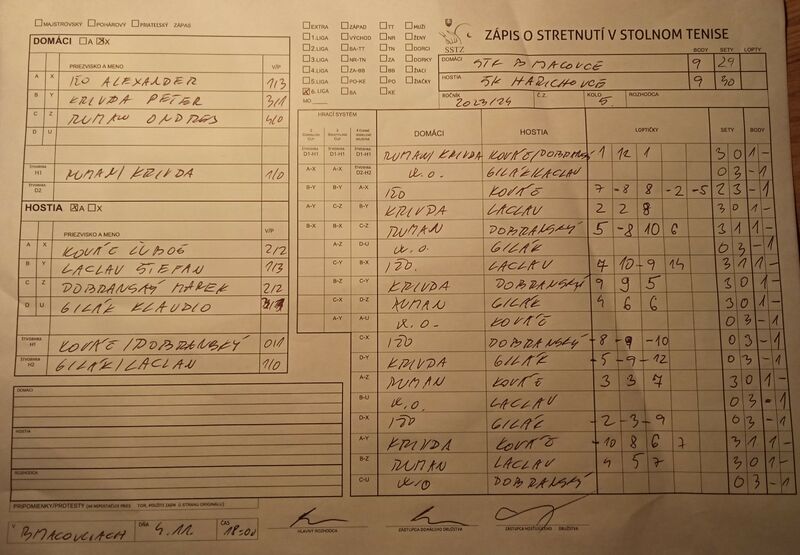 MAJSTROVSKÝ POHÁROVÝ PRIATEĽSKÝ ZÁPAS
DOMÁCI A X
PRIEZVISKO A MENO V/P
A X IŽO ALEXANDER 1/3
B Y KRIVDA PETER 3/1
C Z RUMAN ONDREJ 4/0
D U
štvorhra H1 RUMAN/KRIVDA 1/0
štvorhra D2
HOSTIA A X
PRIEZVISKO A MENO V/P
A X KOVÁČ ĽUBOŠ 2/2
B Y LACLAV ŠTEFAN 1/3
C Z DOBRANSKÝ MAREK 2/2
D U GILÁK KLAUDIO
štvorhra H1 KOVÁČ/DOBRANSKÝ 0/1
štvorhra H2 GILÁK/LACLAV 1/0
DOMÁCI
HOSTIA
ROZHODCA
PRIPOMIENKY/PROTESTY
V BIJACOVCIACH DŇA 4.11. ČAS 18:00
EXTRA ZÁPAD TT MUŽI
1.LIGA VÝCHOD NR ŽENY
2.LIGA BA-TT TN DORCI
3.LIGA NR-TN ZA DORKY
4.LIGA ZA-BB BB ŽIACI
5.LIGA PO-KE PO ŽIAČKY
6.LIGA BA KE
MO
SSTZ
ZÁPIS O STRETNUTÍ V STOLNOM TENISE
BODY SETY LOPTY
DOMÁCI STK BIJACOVCE 9 29
HOSTIA ŠK HARICHOVCE 9 30
ROČNÍK 2023/24 Č.Z. KOLO 5. ROZHODCA
HRACÍ SYSTÉM DOMÁCI HOSTIA LOPTIČKY SETY BODY
štvorhra D1-H1 štvorhra D1-H1 štvorhra D1-H1 RUMAN/KRIVDA KOVÁČ/DOBRANSKÝ 1 12 1 3 0 1 -
A-X A-X štvorhra D2-H2 w.o. GILÁK/LACLAV 0 3 - 1
B-Y B-Y A-X IŽO KOVÁČ 7 -8 8 -2 -5 2 3 - 1
A-Y C-Z B-Y KRIVDA LACLAV 2 2 8 3 0 1 -
B-X B-X C-Z RUMAN DOBRANSKÝ 5 -8 10 6 3 1 1 -
A-Z D-U w.o. GILÁK 0 3 - 1
C-Y B-X IŽO LACLAV 7 10 -9 14 3 1 1 -
B-Z C-Y KRIVDA DOBRANSKÝ 9 9 5 3 0 1 -
C-X D-Z RUMAN GILÁK 4 6 6 3 0 1 -
A-Y A-U w.o. KOVÁČ 0 3 - 1
C-X IŽO DOBRANSKÝ -8 -9 -10 0 3 - 1
D-Y KRIVDA GILÁK -5 -9 -12 0 3 - 1
A-Z RUMAN KOVÁČ 3 3 7 3 0 1 -
B-U w.o. LACLAV 0 3 - 1
D-X IŽO GILÁK -2 -3 -9 0 3 - 1
A-Y KRIVDA KOVÁČ -10 8 6 7 3 1 1 -
B-Z RUMAN LACLAV 4 5 7 3 0 1 -
C-U w.o DOBRANSKÝ 0 3 - 1
HLAVNÝ ROZHODCA ZÁSTUPCA DOMÁCEHO DRUŽSTVA ZÁSTUPCA HOSŤUJÚCEHO DRUŽSTVA